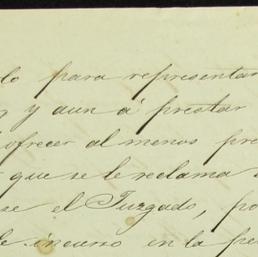 lo para representar
y aun á prestar
ofrecer al menos pre
que se le reclama
se el Juzgado, po
incurso en la pe